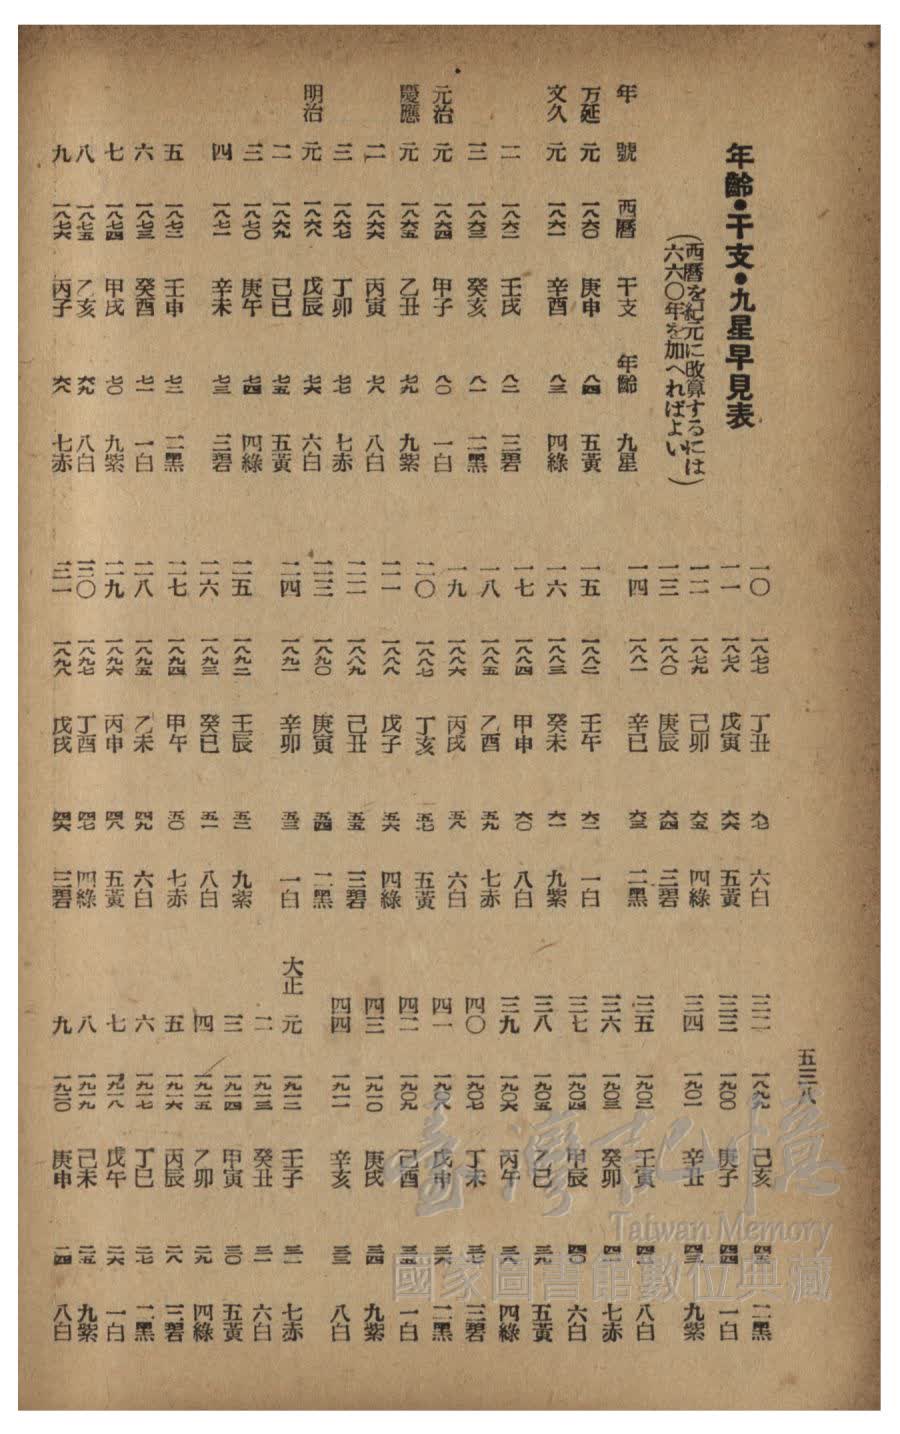 年齡・干支・九星早見表
(西曆を紀元に改算するには
六六〇年を加へればよい)
年號 西曆 干支 年齡 九星
万延 元 一八六〇 庚申 八四 五黃
文久 元 一八六一 辛酉 八三 四綠
二 一八六二 壬戌 八二 三碧
三 一八六三 癸亥 八一 二黑
元治 元 一八六四 甲子 八〇 一白
慶應 元 一八六五 乙丑 七九 九紫
二 一八六六 丙寅 七八 八白
三 一八六七 丁卯 七七 七赤
明治 元 一八六八 戊辰 七六 六白
二 一八六九 己巳 七五 五黃
三 一八七〇 庚午 七四 四綠
四 一八七一 辛未 七三 三碧
五 一八七二 壬申 七二 二黑
六 一八七三 癸酉 七一 一白
七 一八七四 甲戌 七〇 九紫
八 一八七五 乙亥 六九 八白
九 一八七六 丙子 六八 七赤
一〇 一八七七 丁丑 六七 六白
一一 一八七八 戊寅 六六 五黃
一二 一八七九 己卯 六五 四綠
一三 一八八〇 庚辰 六四 三碧
一四 一八八一 辛巳 六三 二黑
一五 一八八二 壬午 六二 一白
一六 一八八三 癸未 六一 九紫
一七 一八八四 甲申 六〇 八白
一八 一八八五 乙酉 五九 七赤
一九 一八八六 丙戌 五八 六白
二〇 一八八七 丁亥 五七 五黃
二一 一八八八 戊子 五六 四綠
二二 一八八九 己丑 五五 三碧
二三 一八九〇 庚寅 五四 二黑
二四 一八九一 辛卯 五三 一白
二五 一八九二 壬辰 五二 九紫
二六 一八九三 癸巳 五一 八白
二七 一八九四 甲午 五〇 七赤
二八 一八九五 乙未 四九 六白
二九 一八九六 丙申 四八 五黃
三〇 一八九七 丁酉 四七 四綠
三一 一八九八 戊戌 四六 三碧
三二 一八九九 己亥 四五 二黑
三三 一九〇〇 庚子 四四 一白
三四 一九〇一 辛丑 四三 九紫
三五 一九〇二 壬寅 四二 八白
三六 一九〇三 癸卯 四一 七赤
三七 一九〇四 甲辰 四〇 六白
三八 一九〇五 乙巳 三九 五黃
三九 一九〇六 丙午 三八 四綠
四〇 一九〇七 丁未 三七 三碧
四一 一九〇八 戊申 三六 二黑
四二 一九〇九 己酉 三五 一白
四三 一九一〇 庚戌 三四 九紫
四四 一九一一 辛亥 三三 八白
大正 元 一九一二 壬子 三二 七赤
二 一九一三 癸丑 三一 六白
三 一九一四 甲寅 三〇 五黃
四 一九一五 乙卯 二九 四綠
五 一九一六 丙辰 二八 三碧
六 一九一七 丁巳 二七 二黑
七 一九一八 戊午 二六 一白
八 一九一九 己未 二五 九紫
九 一九二〇 庚申 二四 八白
五三八
臺灣記憶
Taiwan Memory
國家圖書館數位典藏